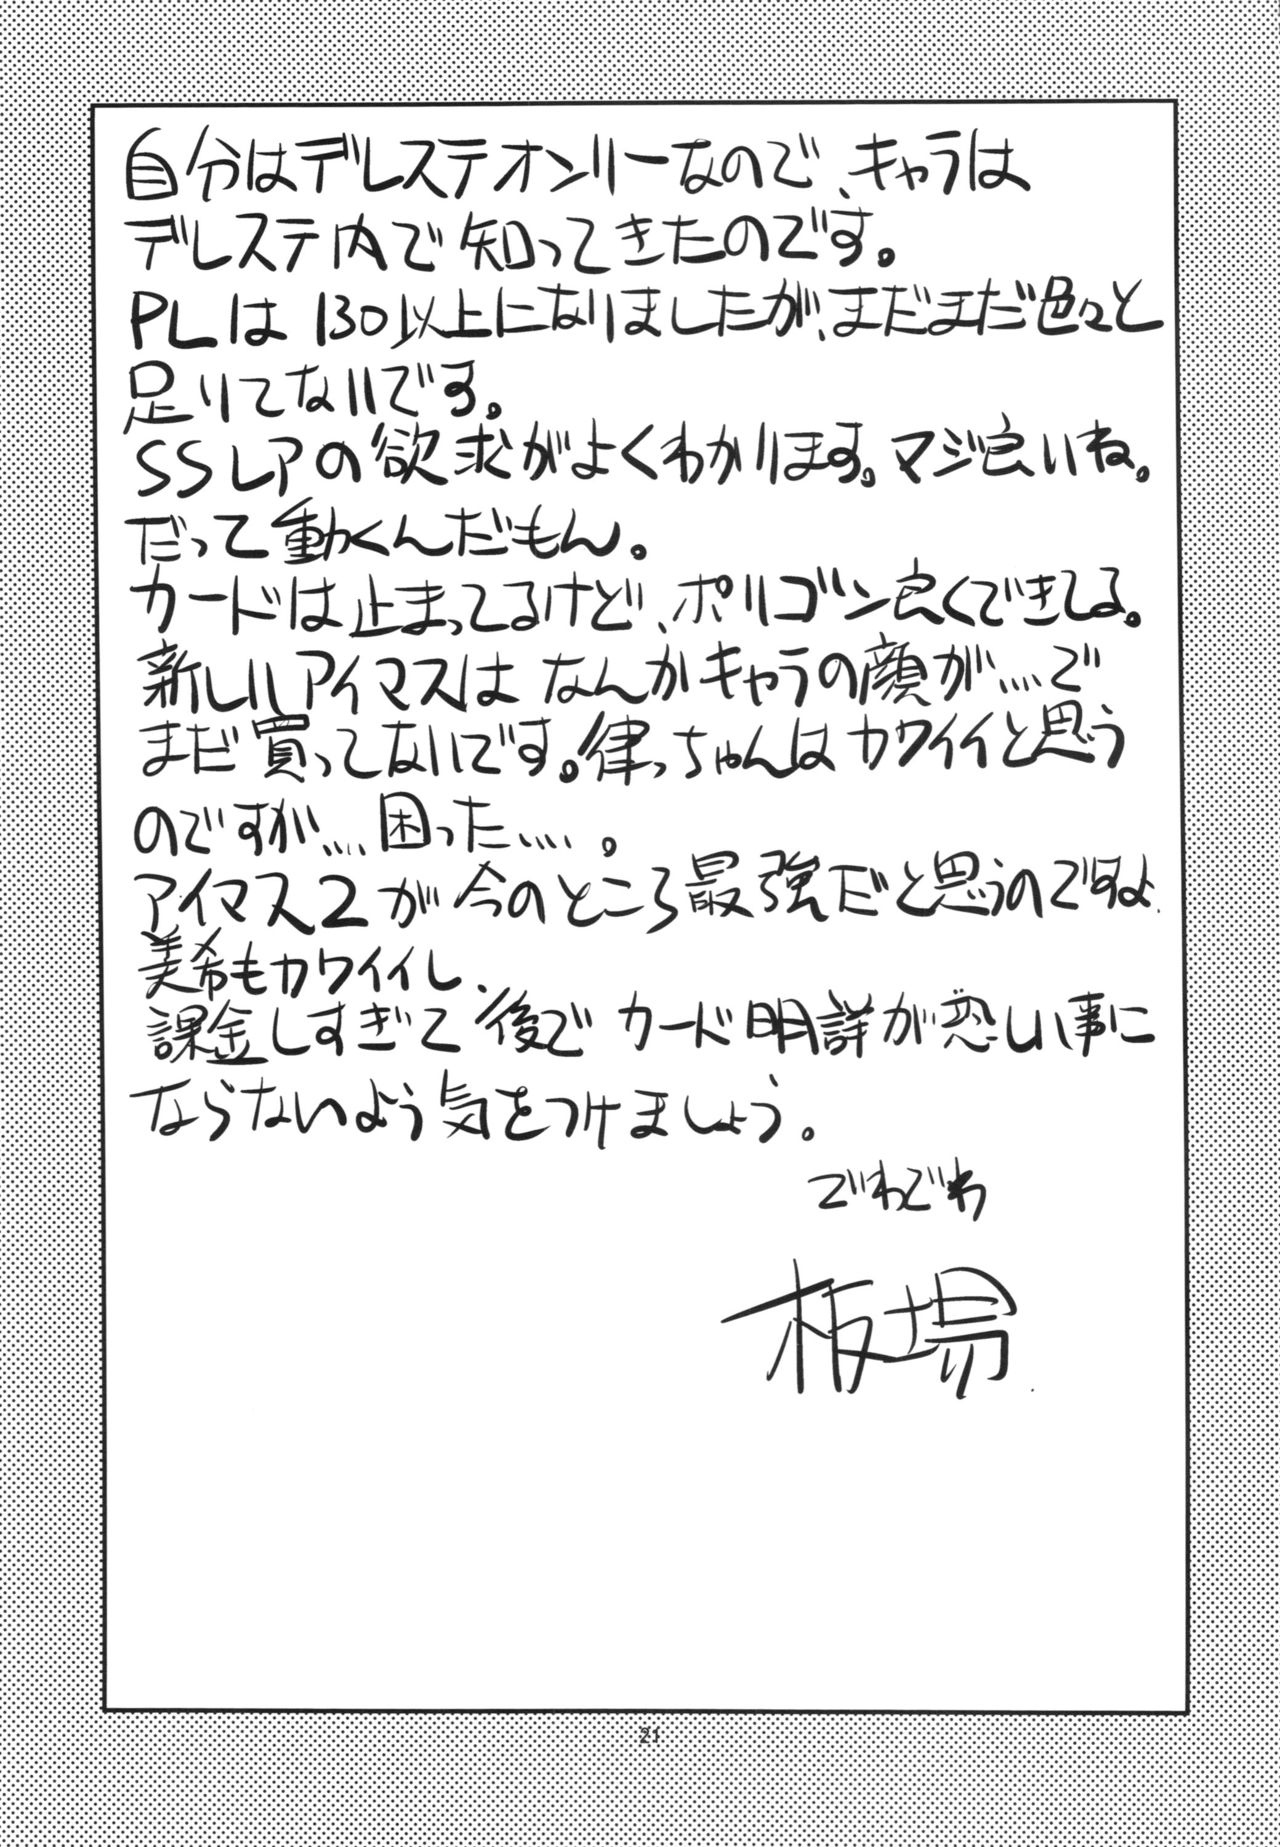 自分はデレステオンリーなので、キャラは
デレステ内で知ってきたのです。
PLは130以上になりましたが、まだまだ色々と
足りてないです。
SSレアの欲求がよくわかります。マジ良いね。
だって動くんだもん。
カードは止まってるけど、ポリゴン良くできてる。
新しいアイマスはなんかキャラの顔が…で
まだ買ってないです。律っちゃんはカワイイと思う
のですが…困った…。
アイマス2が今のところ最強だと思うのですよ
美希もカワイイし、
課金しすぎて後でカード明詳が恐しい事に
ならないよう気をつけましょう。
でわでわ
板場
21